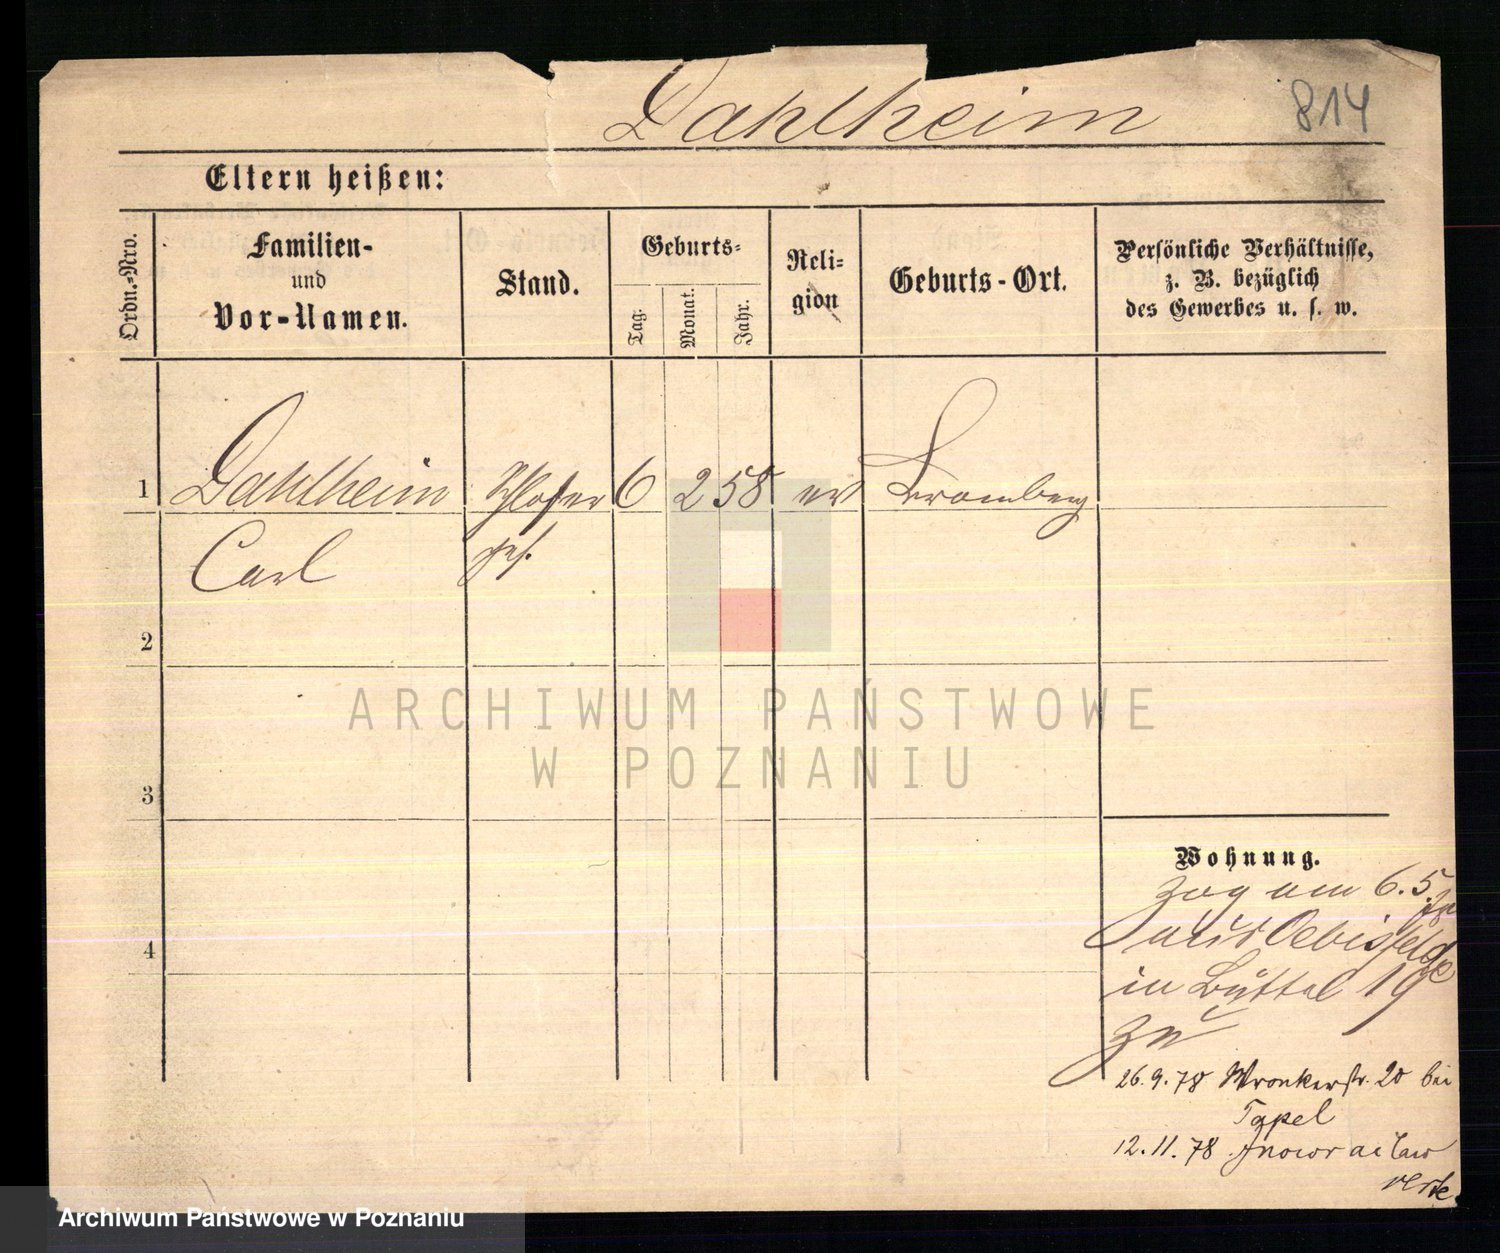 Dahlheim 814
Eltern heißen:
Ordn.-Nro.
Familien-
und
Vor-Namen.
Stand.
Geburts-
Tag.
Monat.
Jahr.
Reli-
gion
Geburts-Ort.
Persönliche Verhältnisse,
z. B. bezüglich
des Gewerbes u. s. w.
1 Dahlheim Schlosser 6 2 58 ev Bromberg
Carl ges.
2
ARCHIWUM PAŃSTWOWE
W POZNANIU
3
Wohnung.
zog am 6.5.78
aus Oebisfelde
in Büttel 19
zu
4
26.9.78 Wronkerstr. 20 bei
Tapel
12.11.78 Inowraclaw
Archiwum Państwowe w Poznaniu